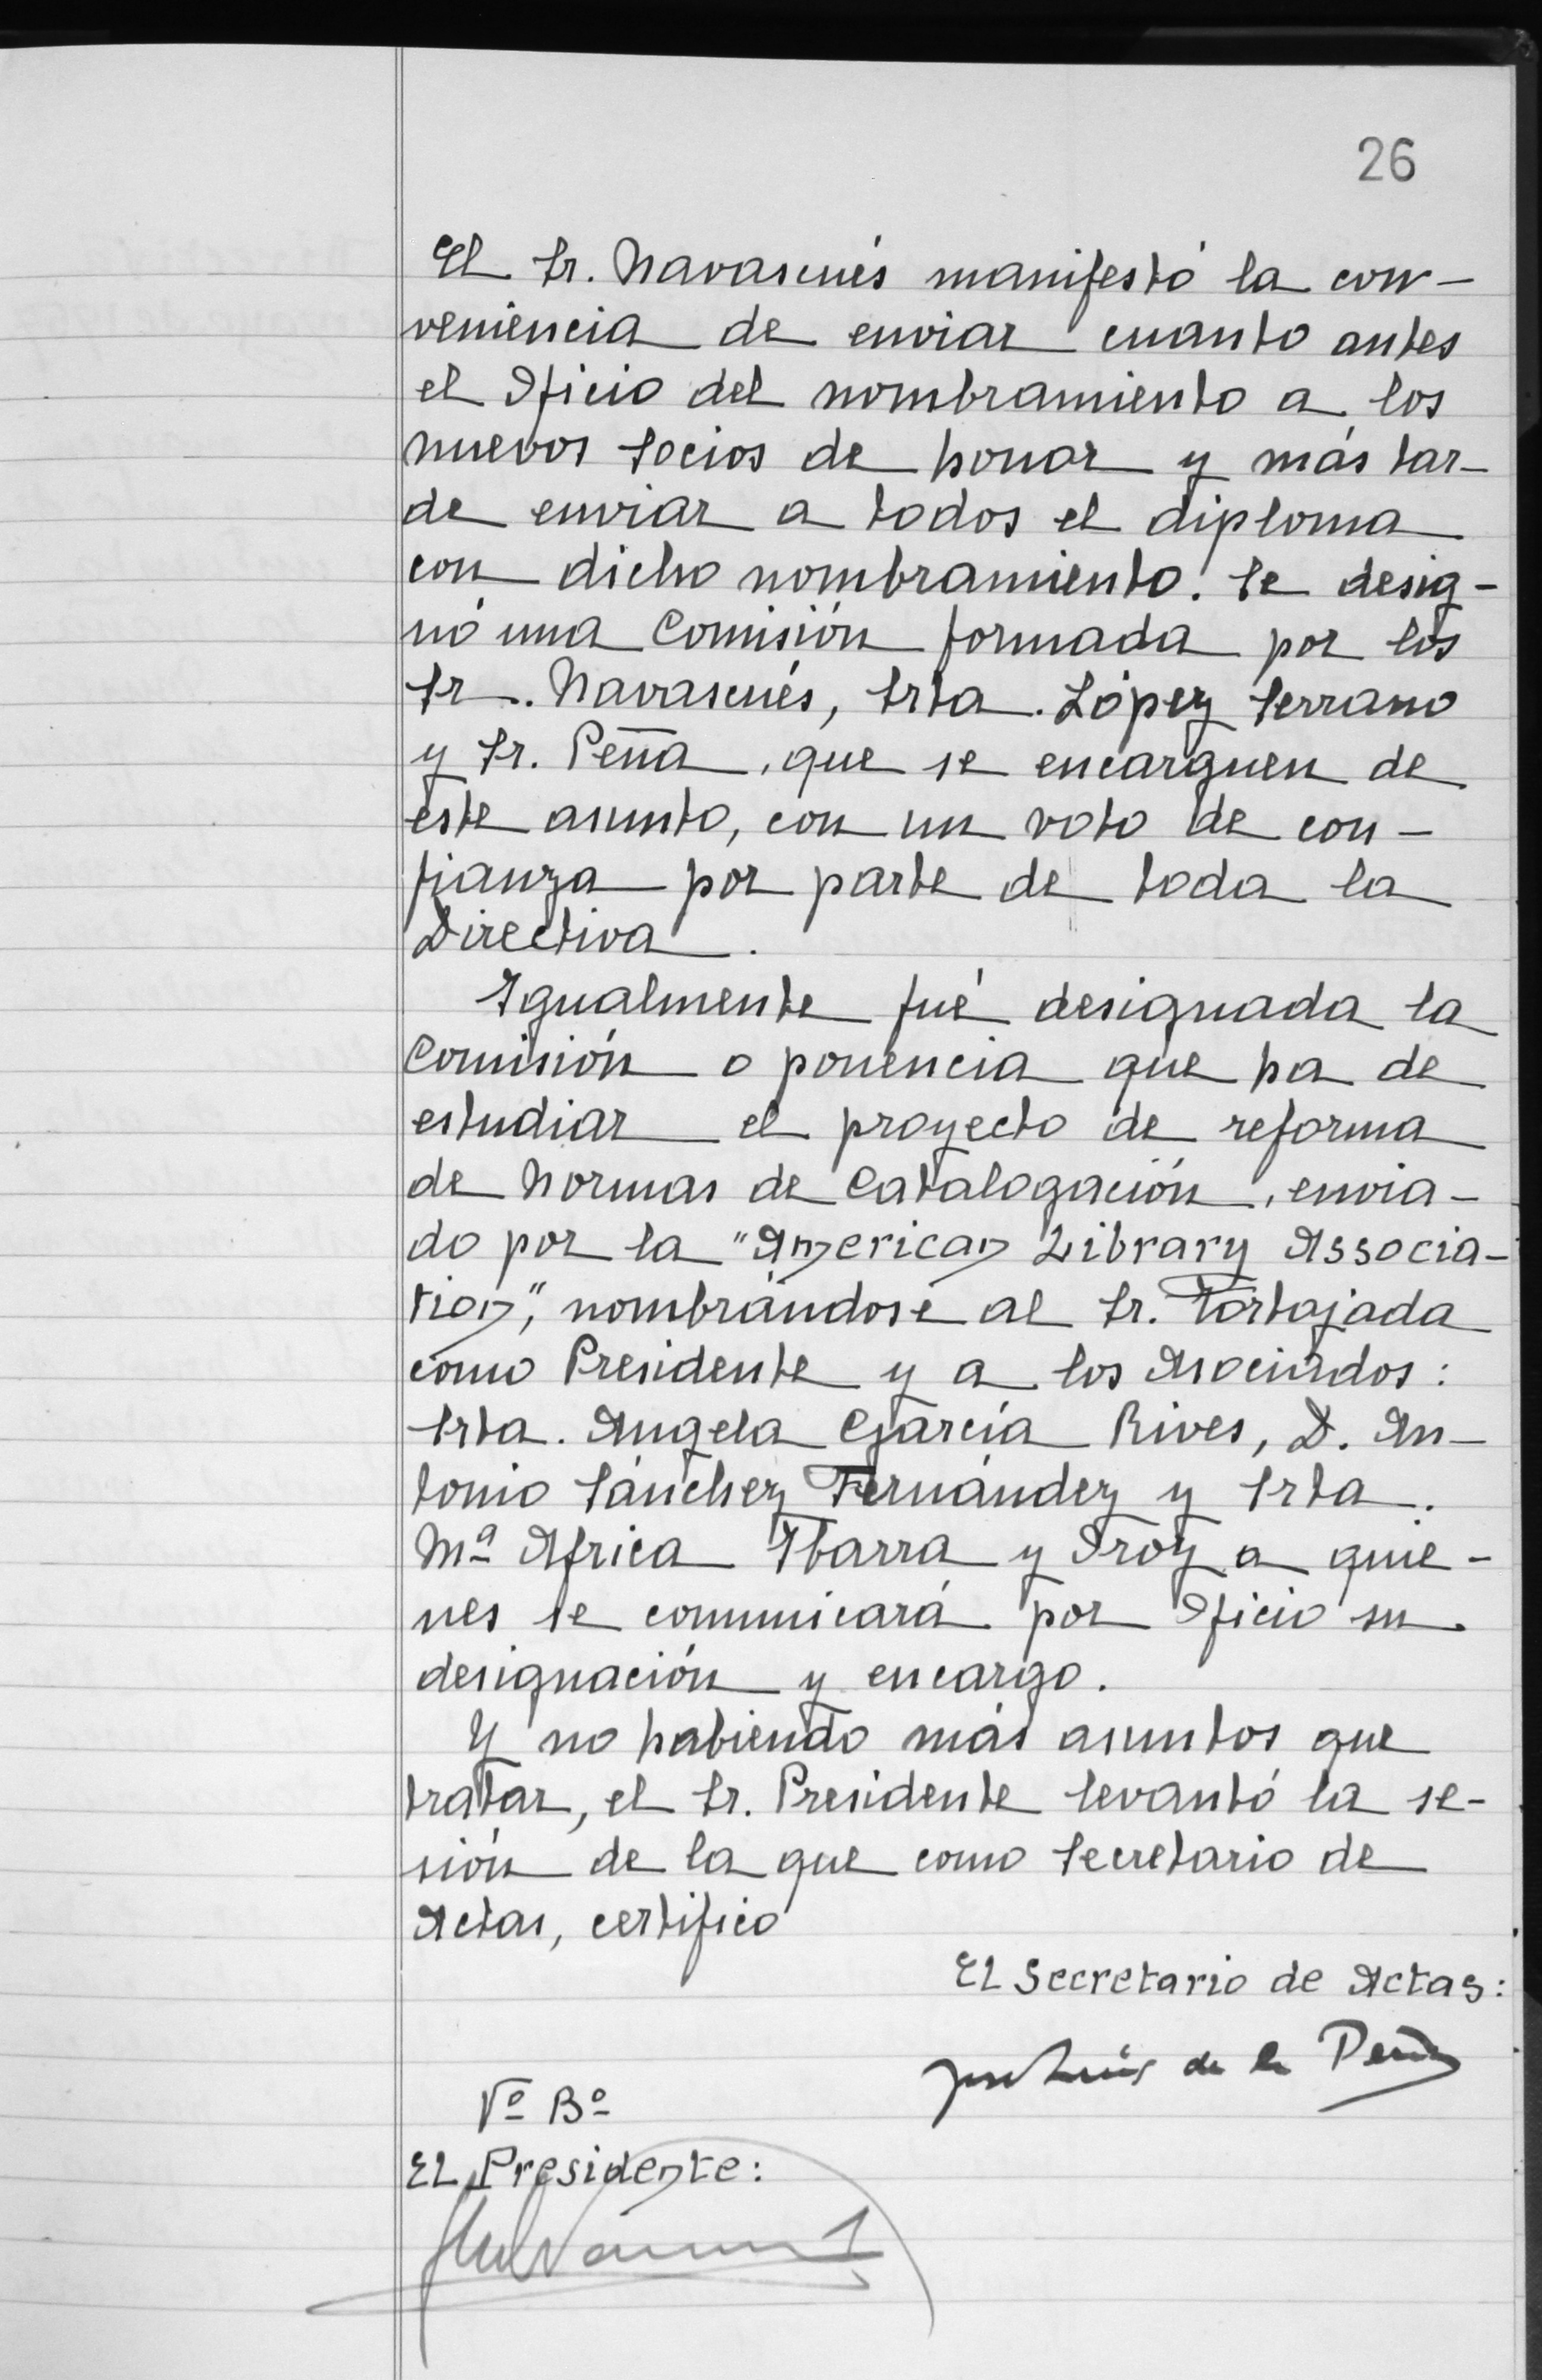 26
El Sr. Navascués manifestó la con-
veniencia de enviar cuanto antes
el Oficio del nombramiento a los
nuevos Socios de honor y más tar-
de enviar a todos el diploma
con dicho nombramiento. Se desig-
nó una Comisión formada por los
Sr. Navascués, Srta. López Serrano
y Sr. Peña, que se encarguen de
este asunto, con un voto de con-
fianza por parte de toda la
Directiva.
Igualmente fué designada la
Comisión o ponencia que ha de
estudiar el proyecto de reforma
de Normas de Catalogación, envia-
do por la "American Library Associa-
tion", nombrándose al Sr. Tortajada
como Presidente y a los Asociados:
Srta. Angela García Rives, D. An-
tonio Sánchez Fernández y Srta.
Mª Africa Ibarra y Oroz a quie-
nes se comunicará por Oficio su
designación y encargo.
Y no habiendo más asuntos que
tratar, el Sr. Presidente levantó la se-
sión de la que como Secretario de
Actas, certifico
El Secretario de Actas:
José Luis de la Peña
Vº Bº
El Presidente: